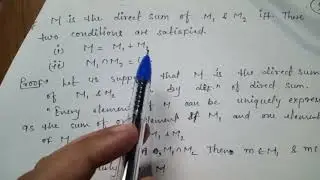 M is the direct sum of M₁ & M₂ iff. These
two conditions are satisfied.
(i) M = M₁ + M₂
(ii) M₁ ∩ M₂ =
Proof Let us suppose that M is the direct sum
of M₁ & M₂ by dfⁿ of direct sum.
"Every element of M can be uniquely expressed
as the sum of element of M₁ and element
of M₁ & M₂
M₁∩M₂ Then m ∈ M₁ & m
M